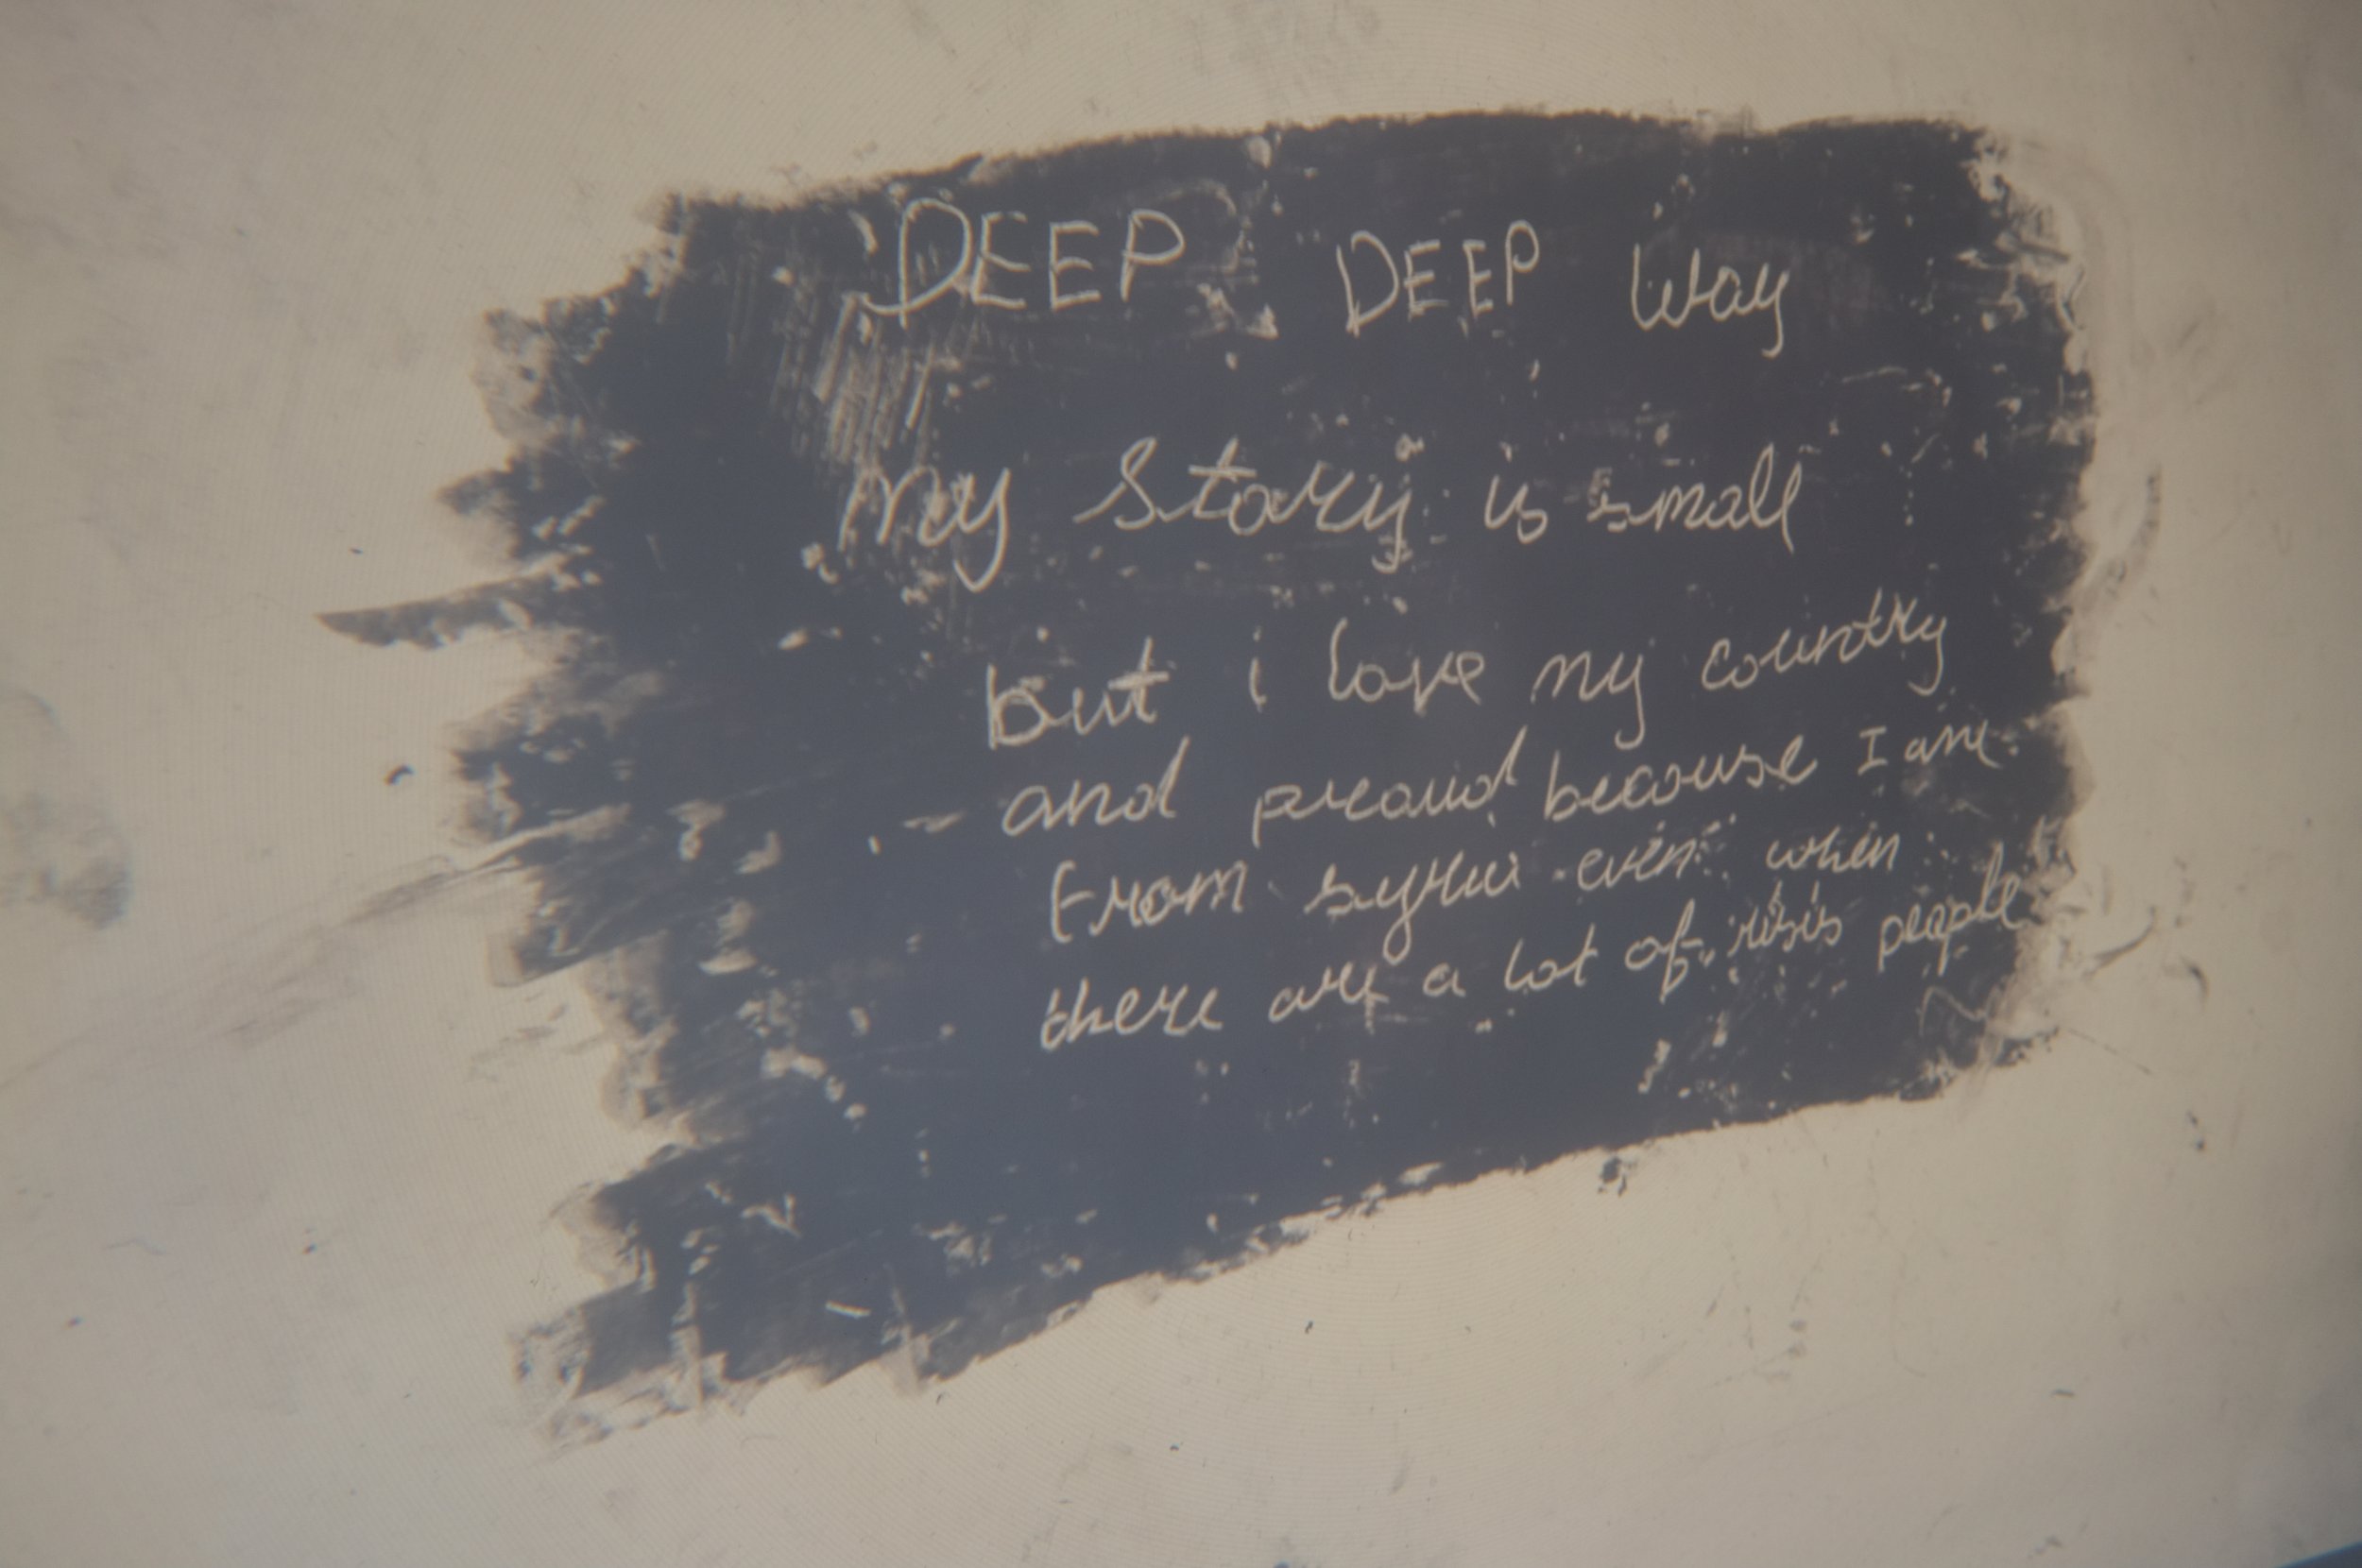 DEEP DEEP way
my story is small
but i love my country
and proud becouse I am
from syria even when
there are a lot of people